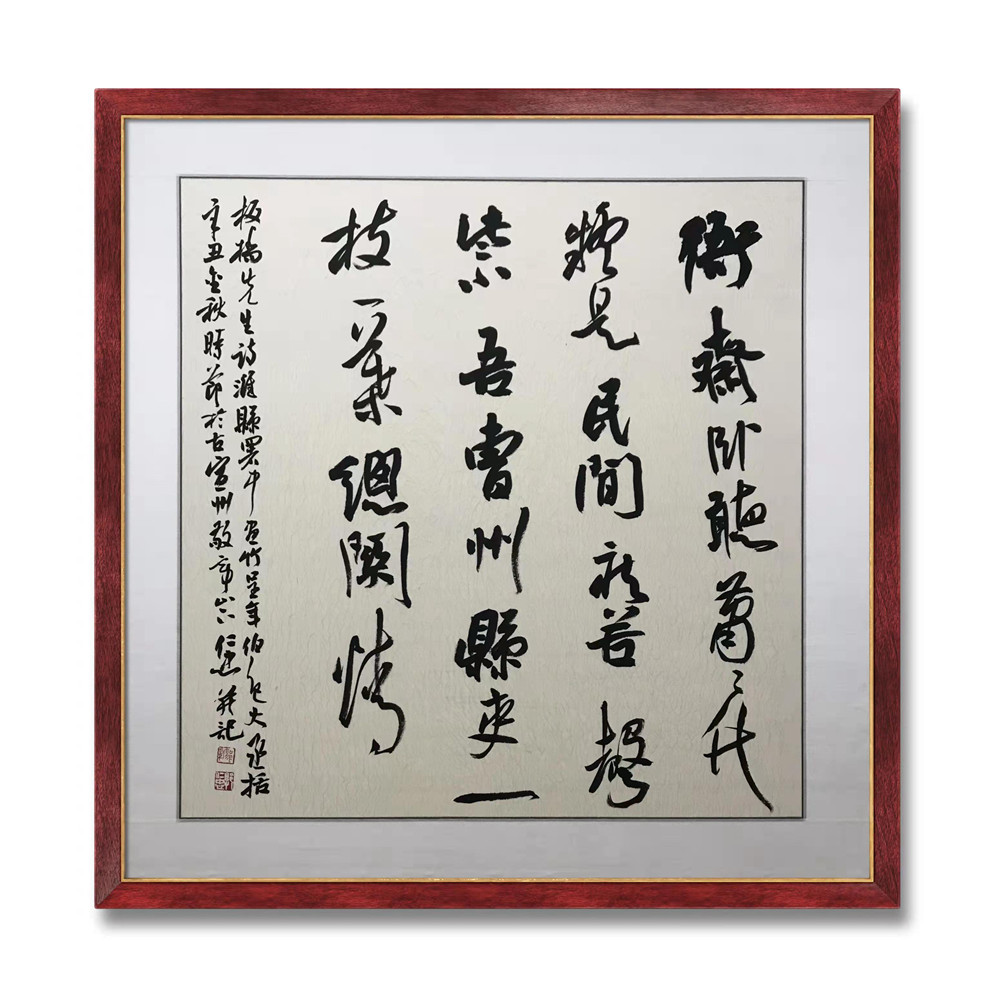 衙齋卧聽蕭〻竹
疑是民間疾苦聲
些小吾曹州縣吏一
枝一葉總關情
板橋先生詩濰縣署中畫竹呈年伯包大丞括
辛丑金秋時節於古宣州敬亭山仁並記